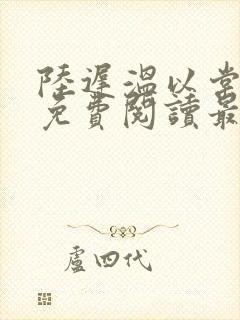 陸遲溫以棠
免費閱讀最
盧四代